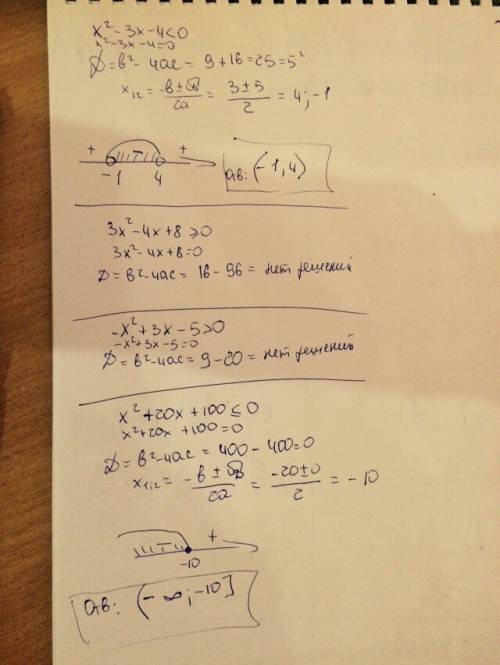 x² - 3x - 4 < 0
x² - 3x - 4 = 0
D = в² - 4ac = 9 + 16 = 25 = 5²
x₁₂ = (-в ± √D)/2a = (3 ± 5)/2 = 4; -1
+ - +
-1 4
Ов: (-1, 4)
3x² - 4x + 8 ≥ 0
3x² - 4x + 8 = 0
D = в² - 4ac = 16 - 96 = нет решений
-x² + 3x - 5 ≥ 0
-x² + 3x - 5 = 0
D = в² - 4ac = 9 - 20 = нет решений
x² + 20x + 100 ≤ 0
x² + 20x + 100 = 0
D = в² - 4ac = 400 - 400 = 0
x₁,₂ = (-в ± √D)/2a = (-20 ± 0)/2 = -10
- +
-10
Ов: (-∞; -10]